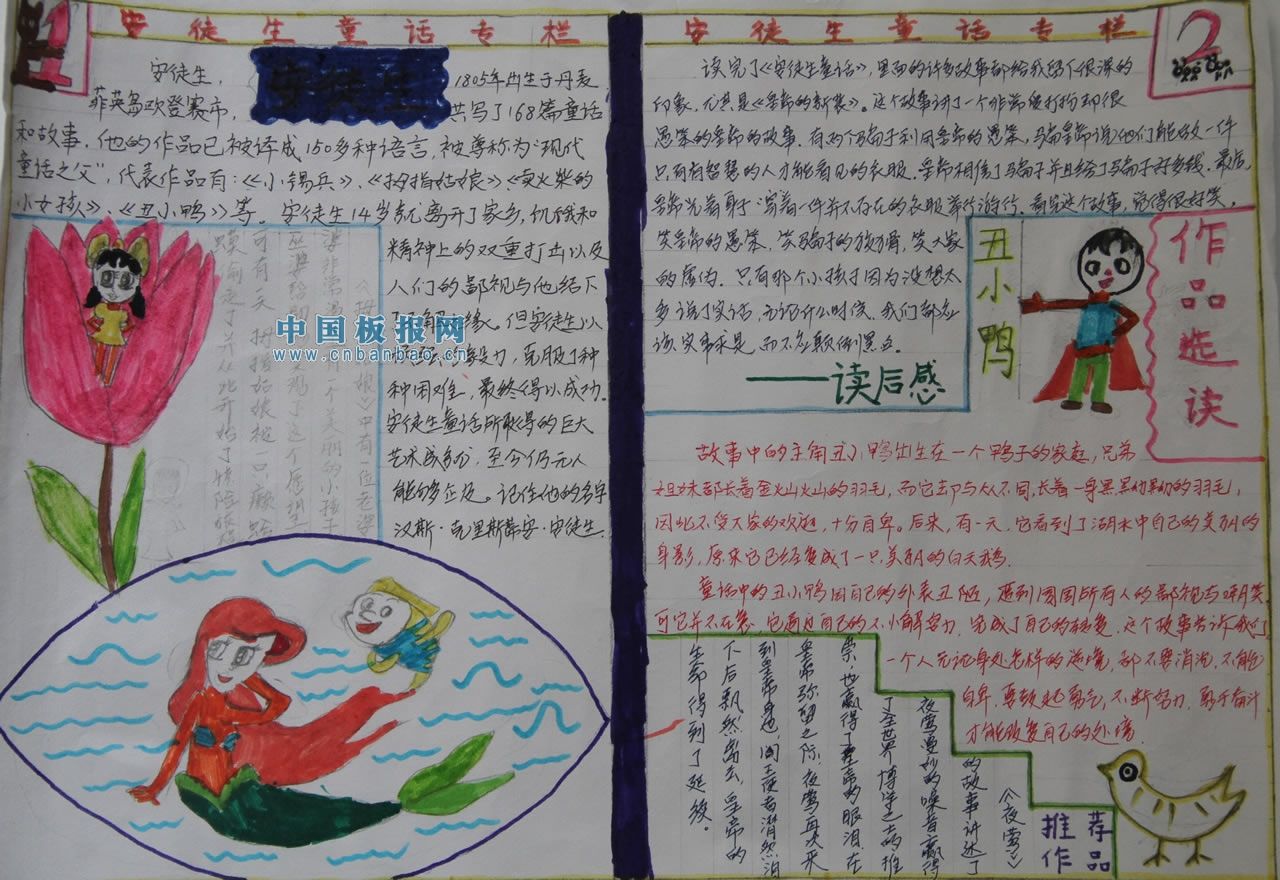 安徒生童话专栏
1
安徒生
安徒生，
1805年出生于丹麦
菲英岛欧登赛市，
共写了168篇童话
和故事，他的作品已被译成150多种语言，被尊称为“现代
童话之父”，代表作品有：《小锡兵》、《拇指姑娘》《卖火柴的
小女孩》、《丑小鸭》等。安徒生14岁就离开了家乡，饥饿和
精神上的双重打击以及
人们的鄙视与他结下
缘。但安徒生以
力，克服了种
种困难，最终得以成功。
安徒生童话所取得的巨大
艺术成就，至今仍无人
能够企及。记住他的名字
汉斯·克里斯蒂安·安徒生。
中国板报网
www.cnbanbao.cn
安徒生童话专栏
2
读完了《安徒生童话》，里面的许多故事都给我留下很深的
印象，尤其是《皇帝的新装》。这个故事讲了一个非常爱打扮却很
愚笨的皇帝的故事。有两个骗子利用皇帝的愚笨，骗皇帝说他们能做一件
只有有智慧的人才能看见的衣服。皇帝相信了骗子并且给了骗子好多钱。最后，
皇帝光着身子穿着一件并不存在的衣服举行游行。看完这个故事，觉得很好笑，
笑皇帝的愚笨，笑骗子的狡猾，笑大家
的虚伪。只有那个小孩子因为没想太
多说了实话，无论什么时候，我们都应
该实事求是，而不应颠倒黑白。
——读后感
丑小鸭
作品选读
故事中的主角丑小鸭出生在一个鸭子的家庭，兄弟
姐妹都长着金灿灿的羽毛，而它却与众不同，长着一身黑黝黝的羽毛，
因此不受大家的欢迎，十分自卑。后来，有一天，它看到了湖水中自己的美丽的
身影，原来它已经变成了一只美丽的白天鹅。
童话中的丑小鸭因自己的外表丑陋，遭到周围所有人的鄙视与嘲笑
可它并不在意，它通过自己的不小解努力，完成了自己的转变。这个故事告诉我们
一个人无论身处怎样的逆境，都不要消沉，不能
自卑，要鼓起勇气，不断努力，勇于奋斗
才能改变自己的处境
《夜莺》
的故事讲述了
夜莺曼妙的嗓音赢得
了全世界博学之士的推
崇，也赢得了皇帝的眼泪。在
皇帝弥留之际，夜莺再次来
到皇帝身边，阎王使者潸然泪
下后飘然离去，皇帝的
生命得到了延续。
推荐
作品